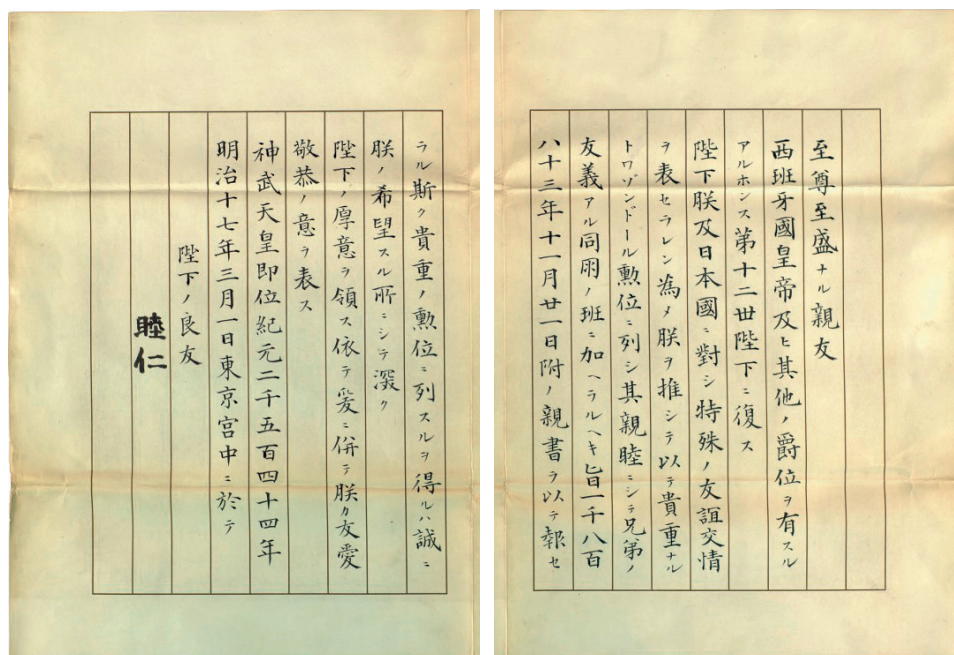 至尊至盛ナル親友
西班牙國皇帝及ヒ其他ノ爵位ヲ有スル
アルホンス第十二世陛下ニ復ス
陛下朕及日本國ニ對シ特殊ノ友誼交情
ヲ表セラレン為メ朕ヲ推シテ以テ貴重ナル
トワゾンドール勲位ニ列シ其親睦ニシテ兄弟ノ
友義アル同朋ノ班ニ加ヘラルヘキ旨一千八百
八十三年十一月廿一日附ノ親書ヲ以テ報セ
ラル斯ク貴重ノ勲位ニ列スルヲ得ルハ誠ニ
朕ノ希望スル所ニシテ深ク
陛下ノ厚意ヲ領ス依テ爰ニ併テ朕カ友愛
敬恭ノ意ヲ表ス
神武天皇即位紀元二千五百四十四年
明治十七年三月一日東京宮中ニ於テ
陛下ノ良友
睦仁